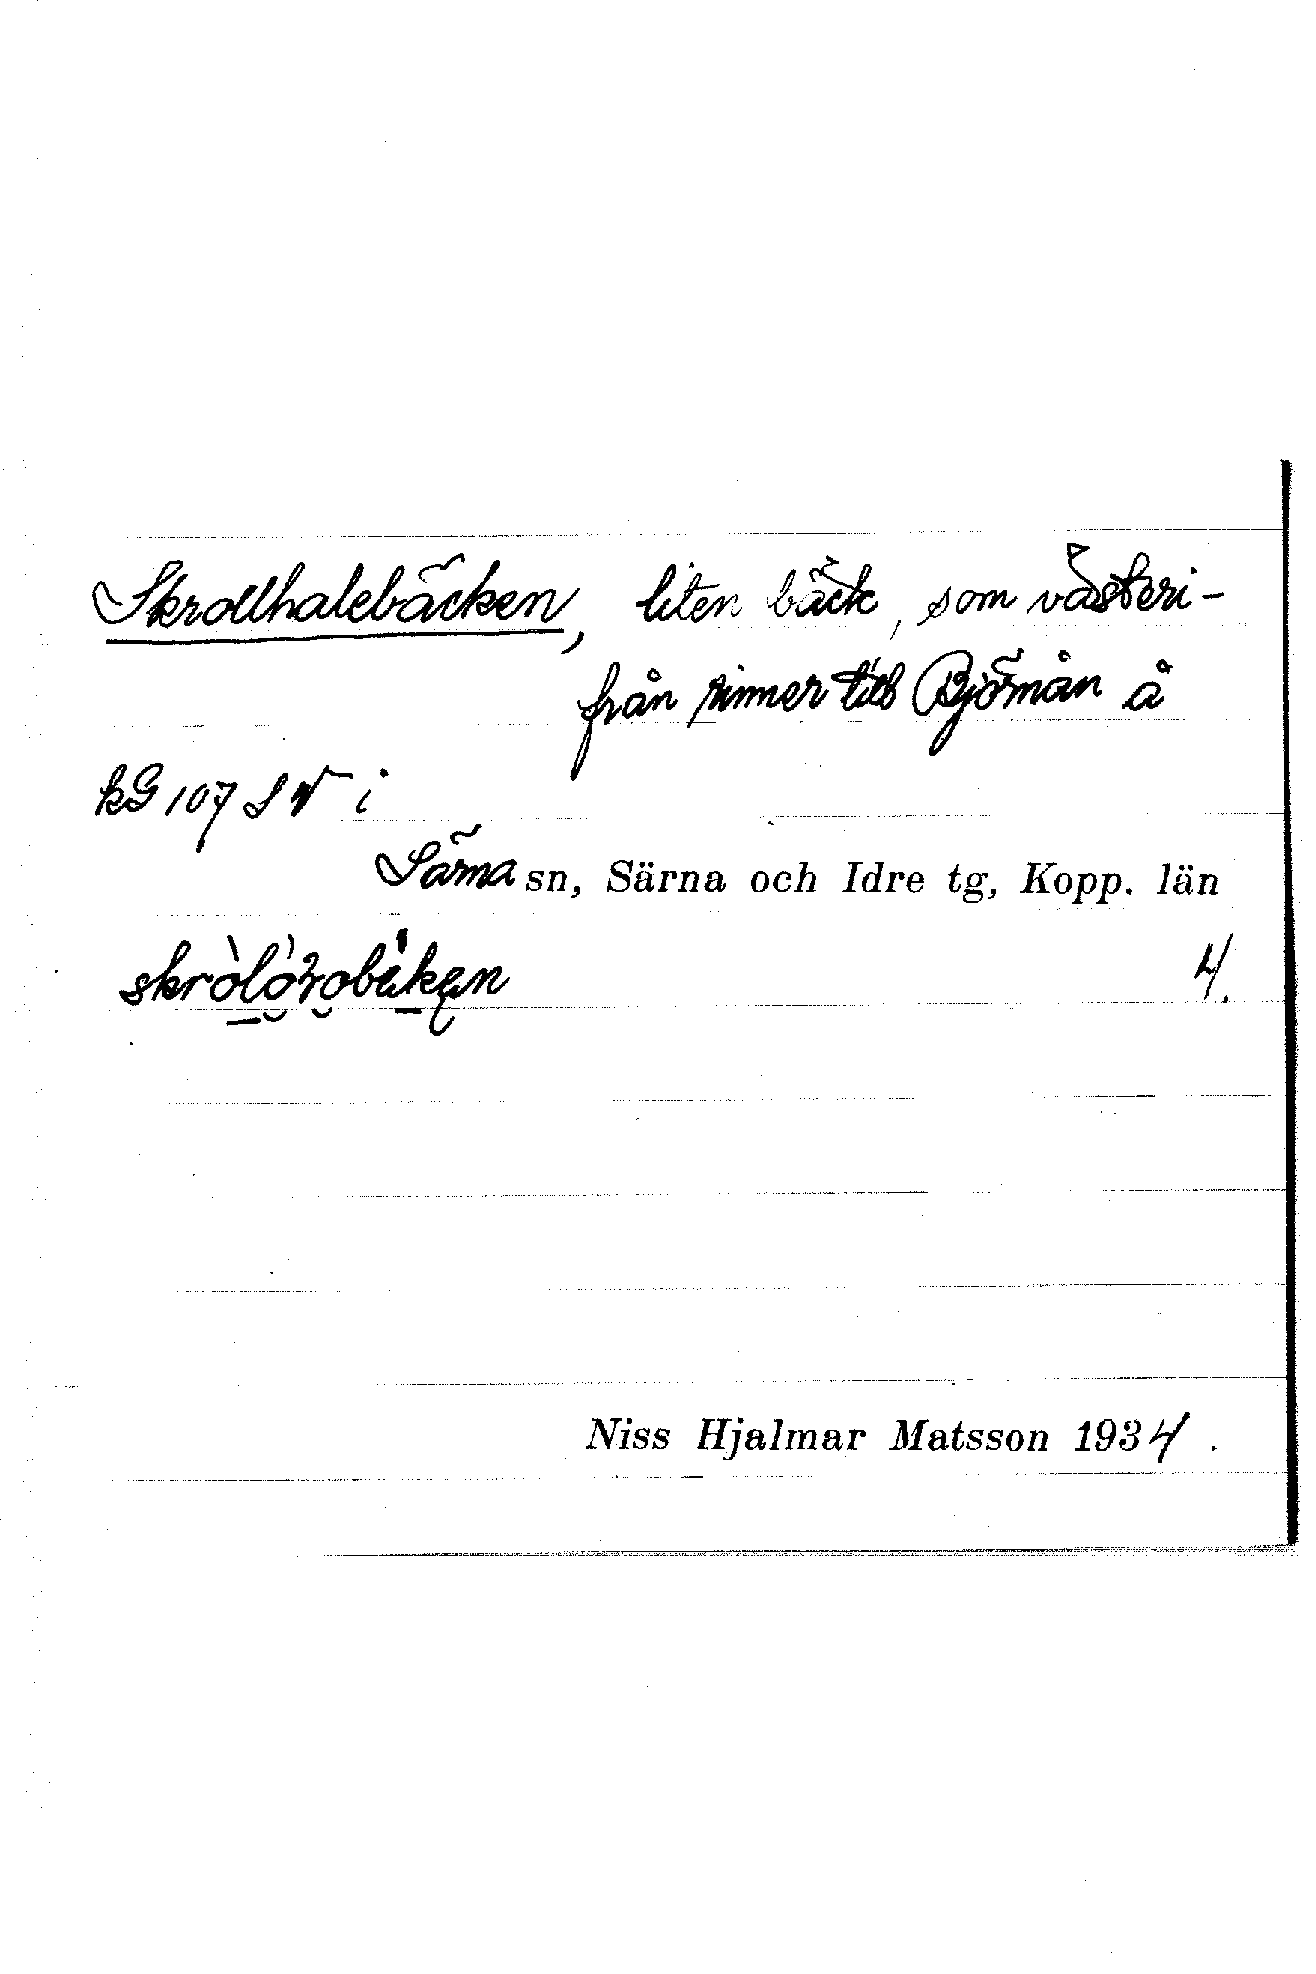 Skrollhalebäcken, liten bäck, som västeri-
från rinner till Björnån å
kG 107 S V i
Särna sn, Särna och Idre tg, Kopp. län
4.
Niss Hjalmar Matsson 1934.